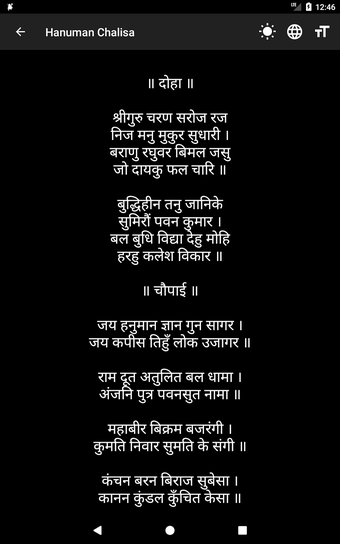 12:46
Hanuman Chalisa
॥ दोहा ॥
श्रीगुरु चरण सरोज रज
निज मनु मुकुर सुधारी ।
बराणु रघुवर बिमल जसु
जो दायकु फल चारि ॥
बुद्धिहीन तनु जानिके
सुमिरौं पवन कुमार ।
बल बुधि विद्या देहु मोहि
हरहु कलेश विकार ॥
॥ चौपाई ॥
जय हनुमान ज्ञान गुन सागर ।
जय कपीस तिहुँ लोक उजागर ॥
राम दूत अतुलित बल धामा ।
अंजनि पुत्र पवनसुत नामा ॥
महाबीर बिक्रम बजरंगी ।
कुमति निवार सुमति के संगी ॥
कंचन बरन बिराज सुबेसा ।
कानन कुंडल कुँचित केसा ॥